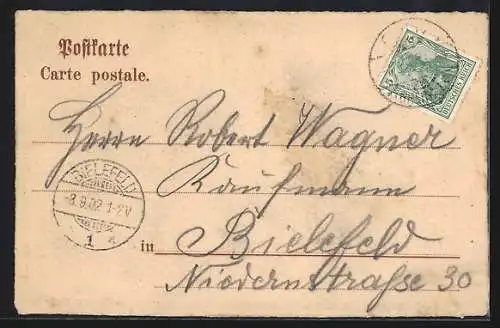 Postkarte
Carte postale.
DEUTSCHES REICH
Herrn Robert Wagner
Kaufmann
BIELEFELD
-8.9.02.1-2V
1
in Bielefeld
Niedernstraße 30